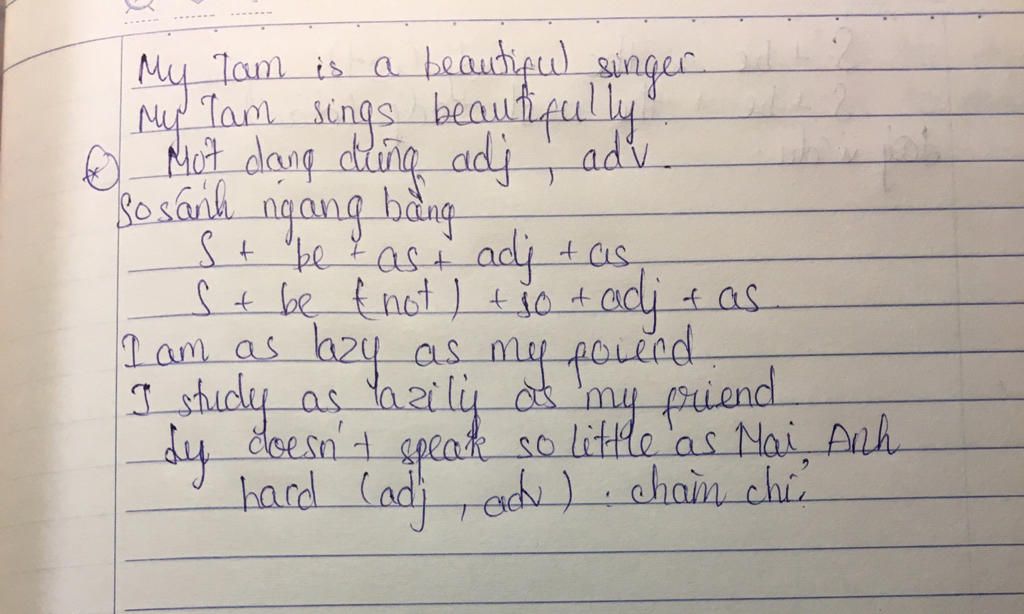 My Tam is a beautiful singer.
My Tam sings beautifully.
* Một dạng dùng adj, adv.
So sánh ngang bằng
S + be + as + adj + as
S + be (not) + so + adj + as
I am as lazy as my poierd
I study as lazily as my friend
dy doesn't speak so little as Mai Anh
hard (adj, adv). chăm chỉ.